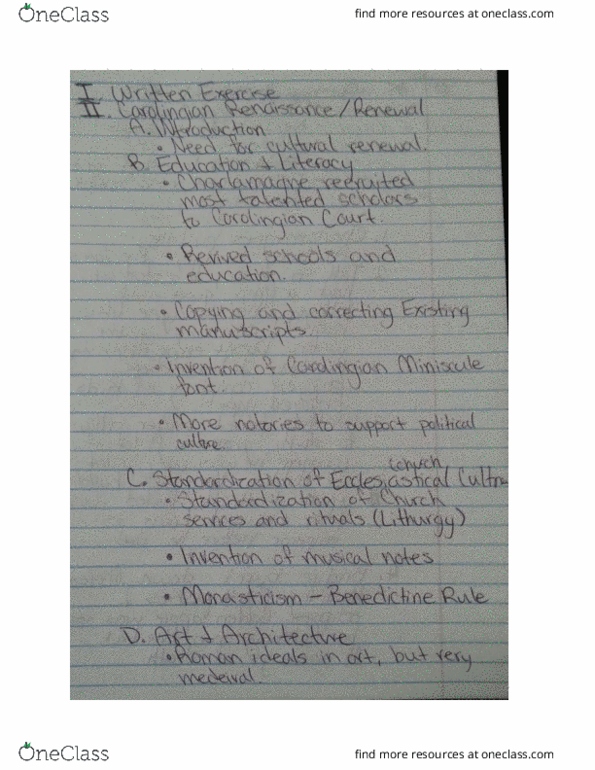 OneClass
find more resources at oneclass.com
I. Written Exercise
II. Carolingian Renaissance/Renewal
A. Introduction
• Need for cultural renewal.
B. Education + Literacy
• Charlamagne reecruited
most talented scholars
to Carolingian Court.
• Revived schools and
education.
• Copying and correcting Existing
manuscripts.
• Invention of Carolingian Miniscule
font.
• More notories to support political
culture
(church)
C. Standardization of Ecclesiastical Cultre
• Standardization of Church
services and rituals (Lithurgy)
• Invention of musical notes
• Monasticism – Benedictine Rule
D. Art + Architecture
• Roman ideals in art, but very
medeival
OneClass
find more resources at oneclass.com